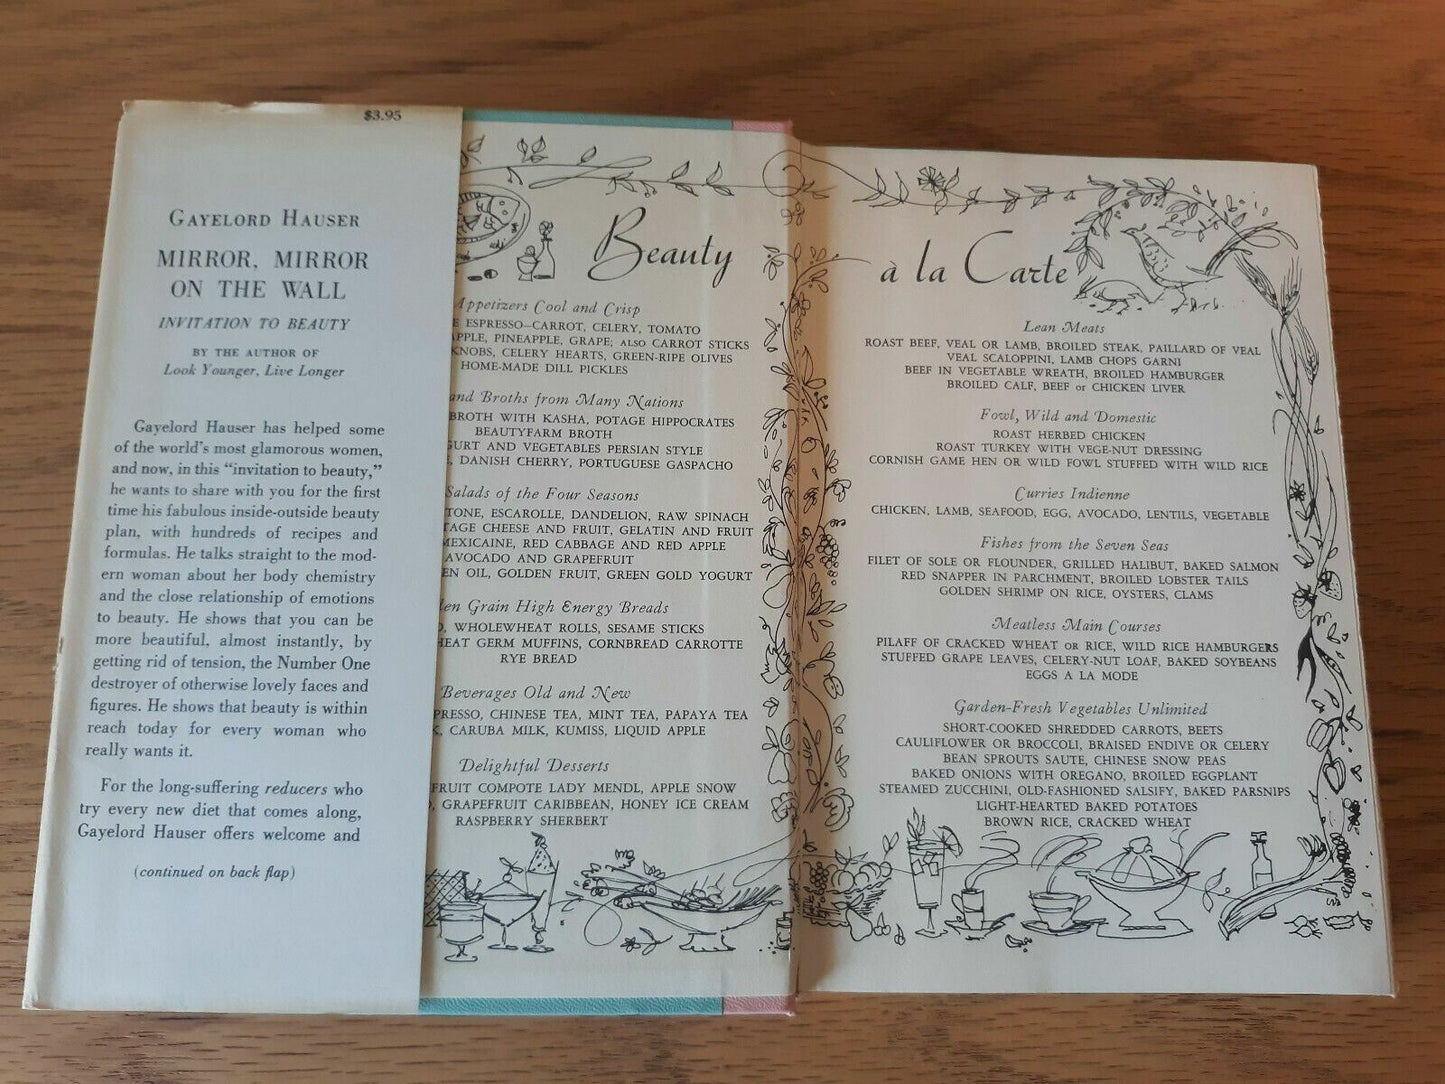 $3.95
GAYELORD HAUSER
MIRROR, MIRROR
ON THE WALL
INVITATION TO BEAUTY
BY THE AUTHOR OF
Look Younger, Live Longer
Gayelord Hauser has helped some
of the world's most glamorous women,
and now, in this "invitation to beauty,"
he wants to share with you for the first
time his fabulous inside-outside beauty
plan, with hundreds of recipes and
formulas. He talks straight to the mod-
ern woman about her body chemistry
and the close relationship of emotions
to beauty. He shows that you can be
more beautiful, almost instantly, by
getting rid of tension, the Number One
destroyer of otherwise lovely faces and
figures. He shows that beauty is within
reach today for every woman who
really wants it.
For the long-suffering reducers who
try every new diet that comes along,
Gayelord Hauser offers welcome and
(continued on back flap)
Beauty
Appetizers Cool and Crisp
ESPRESSO—CARROT, CELERY, TOMATO
APPLE, PINEAPPLE, GRAPE; ALSO CARROT STICKS
KNOBS, CELERY HEARTS, GREEN-RIPE OLIVES
HOME-MADE DILL PICKLES
and Broths from Many Nations
BROTH WITH KASHA, POTAGE HIPPOCRATES
BEAUTYFARM BROTH
AND VEGETABLES PERSIAN STYLE
DANISH CHERRY, PORTUGUESE GASPACHO
Salads of the Four Seasons
ESCAROLLE, DANDELION, RAW SPINACH
CHEESE AND FRUIT, GELATIN AND FRUIT
MEXICAINE, RED CABBAGE AND RED APPLE
AVOCADO AND GRAPEFRUIT
OIL, GOLDEN FRUIT, GREEN GOLD YOGURT
Grain High Energy Breads
WHOLEWHEAT ROLLS, SESAME STICKS
GERM MUFFINS, CORNBREAD CARROTTE
RYE BREAD
Beverages Old and New
CHINESE TEA, MINT TEA, PAPAYA TEA
CARUBA MILK, KUMISS, LIQUID APPLE
Delightful Desserts
FRUIT COMPOTE LADY MENDL, APPLE SNOW
GRAPEFRUIT CARIBBEAN, HONEY ICE CREAM
RASPBERRY SHERBERT
à la Carte
Lean Meats
ROAST BEEF, VEAL OR LAMB, BROILED STEAK, PAILLARD OF VEAL
VEAL SCALOPPINI, LAMB CHOPS GARNI
BEEF IN VEGETABLE WREATH, BROILED HAMBURGER
BROILED CALF, BEEF or CHICKEN LIVER
Fowl, Wild and Domestic
ROAST HERBED CHICKEN
ROAST TURKEY WITH VEGE-NUT DRESSING
CORNISH GAME HEN OR WILD FOWL STUFFED WITH WILD RICE
Curries Indienne
CHICKEN, LAMB, SEAFOOD, EGG, AVOCADO, LENTILS, VEGETABLE
Fishes from the Seven Seas
FILET OF SOLE OR FLOUNDER, GRILLED HALIBUT, BAKED SALMON
RED SNAPPER IN PARCHMENT, BROILED LOBSTER TAILS
GOLDEN SHRIMP ON RICE, OYSTERS, CLAMS
Meatless Main Courses
PILAFF OF CRACKED WHEAT OR RICE, WILD RICE HAMBURGERS
STUFFED GRAPE LEAVES, CELERY-NUT LOAF, BAKED SOYBEANS
EGGS A LA MODE
Garden-Fresh Vegetables Unlimited
SHORT-COOKED SHREDDED CARROTS, BEETS
CAULIFLOWER OR BROCCOLI, BRAISED ENDIVE OR CELERY
BEAN SPROUTS SAUTE, CHINESE SNOW PEAS
BAKED ONIONS WITH OREGANO, BROILED EGGPLANT
STEAMED ZUCCHINI, OLD-FASHIONED SALSIFY, BAKED PARSNIPS
LIGHT-HEARTED BAKED POTATOES
BROWN RICE, CRACKED WHEAT